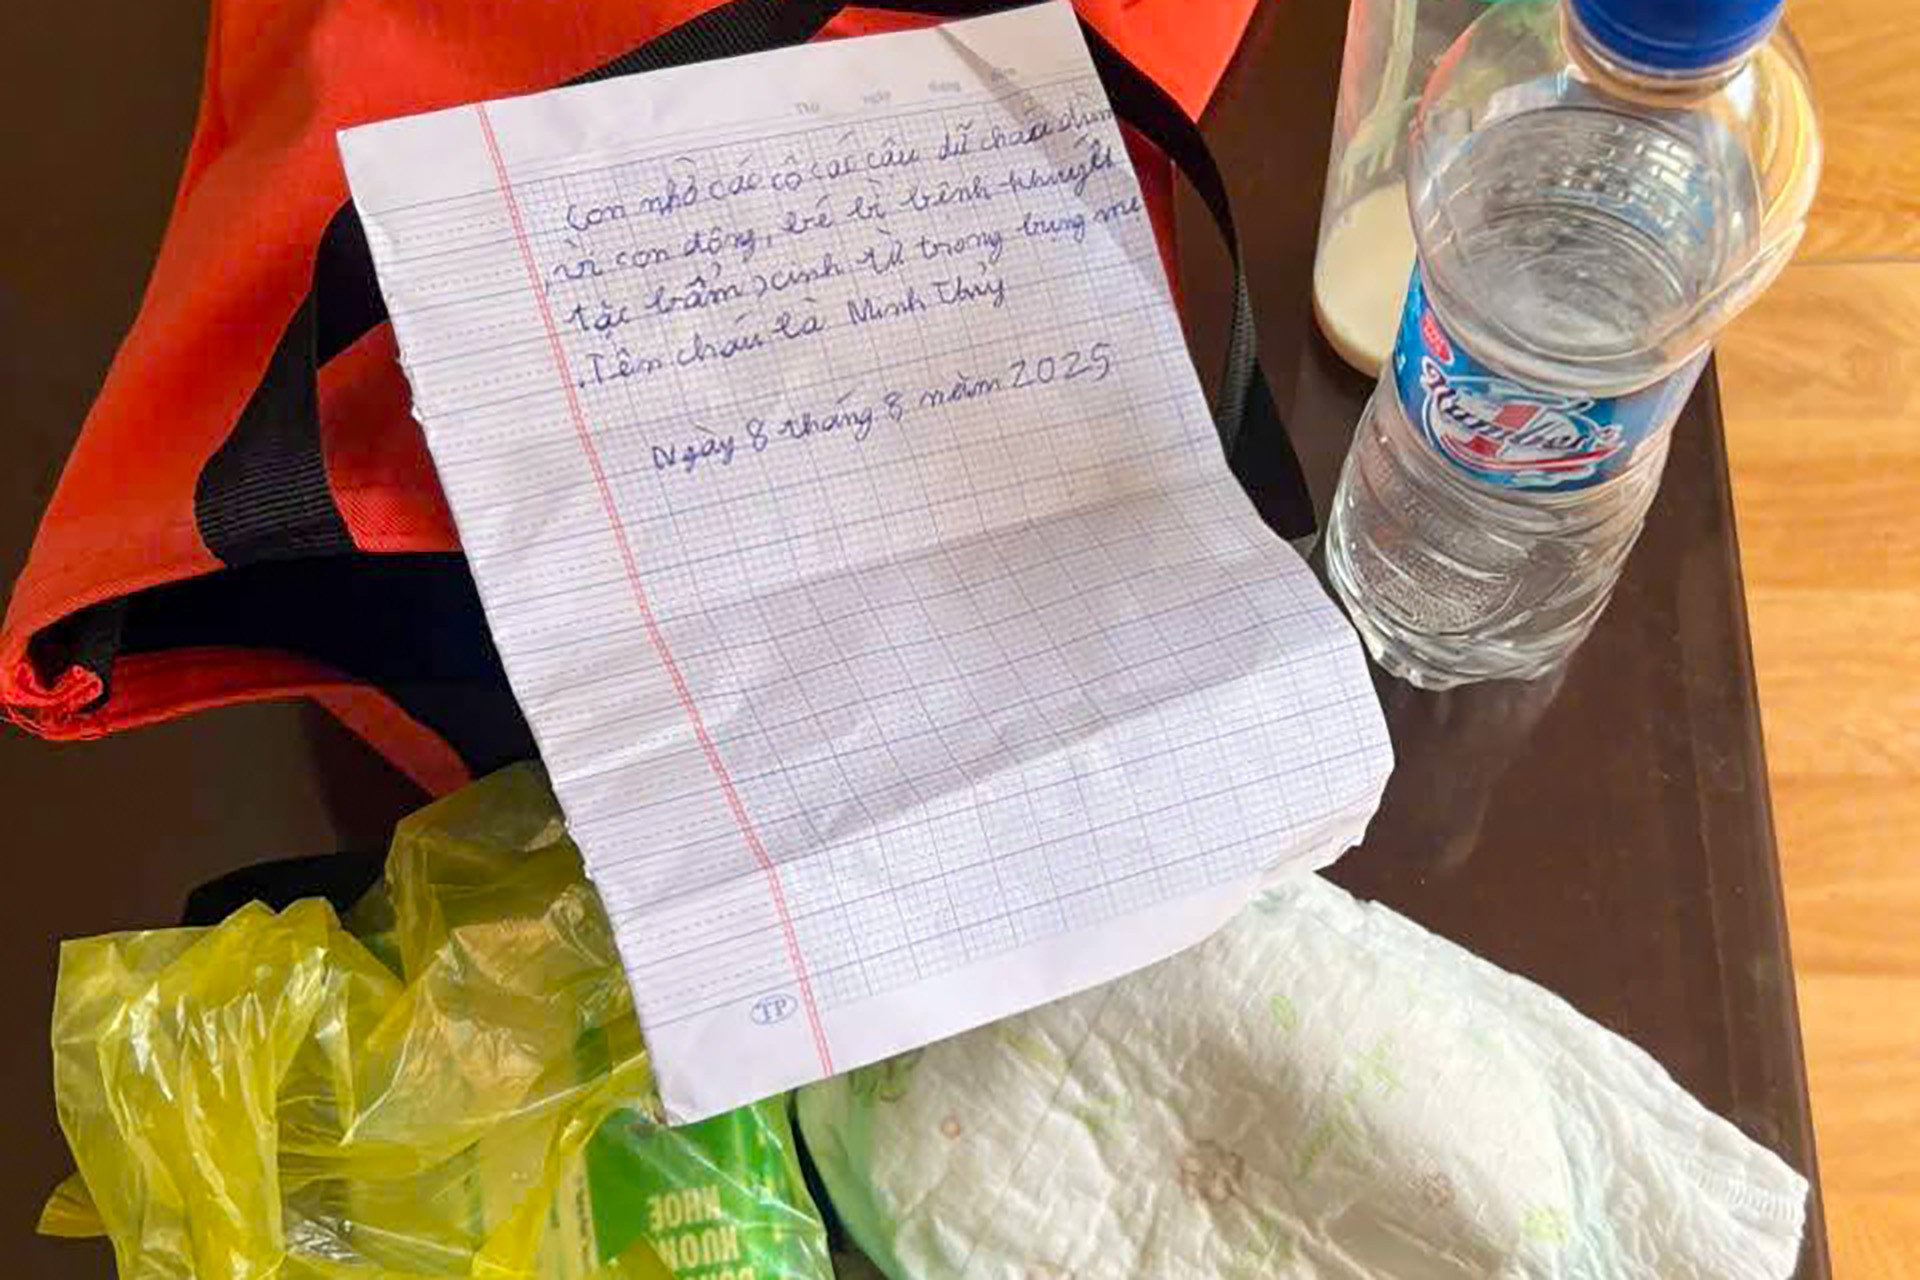 Thứ ngày tháng năm
Con nhờ các cô các câu dữ cháu dùm
vì con đông, bé bì bênh khuyết
tậc bẩm sinh từ trong bụng mẹ
.Tên cháu là Minh Thùy
Ngày 8 tháng 8 năm 2025
TP
Number 1
NHOE
NUOH